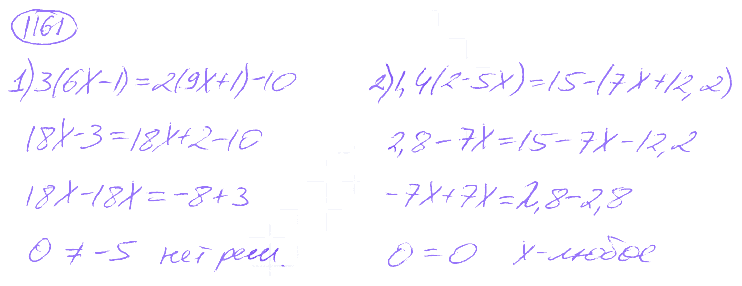 1161
1) 3(6x-1)=2(9x+1)-10
18x-3=18x+2-10
18x-18x=-8+3
0≠-5 нет реш.
2) 1,4(2-5x)=15-(7x+12,2)
2,8-7x=15-7x-12,2
-7x+7x=2,8-2,8
0=0 x-любое